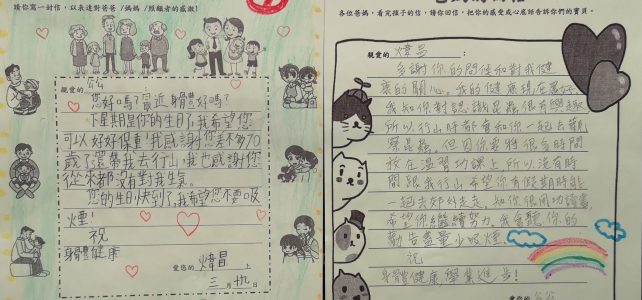 請你寫一封信，以表達對爸爸/媽媽/照顧者的感激!
親愛的 公公
您好嗎?最近身體好嗎?
下星期是你的生日了,我希望您
可以好好保重!我感謝您差不多70
歲了還帶我去行山,我也感謝您
從來都沒有對我生氣。
您的生日快到了,我希望您不要吸
煙!
祝
身體健康
愛您的 煒昌 上
三月 九
各位爸媽，看完孩子的信，請你回信，把你的感受或心底話告訴你們的寶貝。
親愛的 煒昌：
多謝你的問候和對我健
康的關心。我的健康現在還好。
我知你對認識昆蟲很有興趣
所以行山時都會和你一起去觀
察昆蟲，但因你要將很多時間
放在溫習功課上所以沒有時
間跟我行山希望你有假期時能
一起去郊外走走,知你很用功讀書,
希望你繼續努力,我會聽你的
勸告盡量少吸煙。
祝
身體健康學業進步!
愛你的 公公